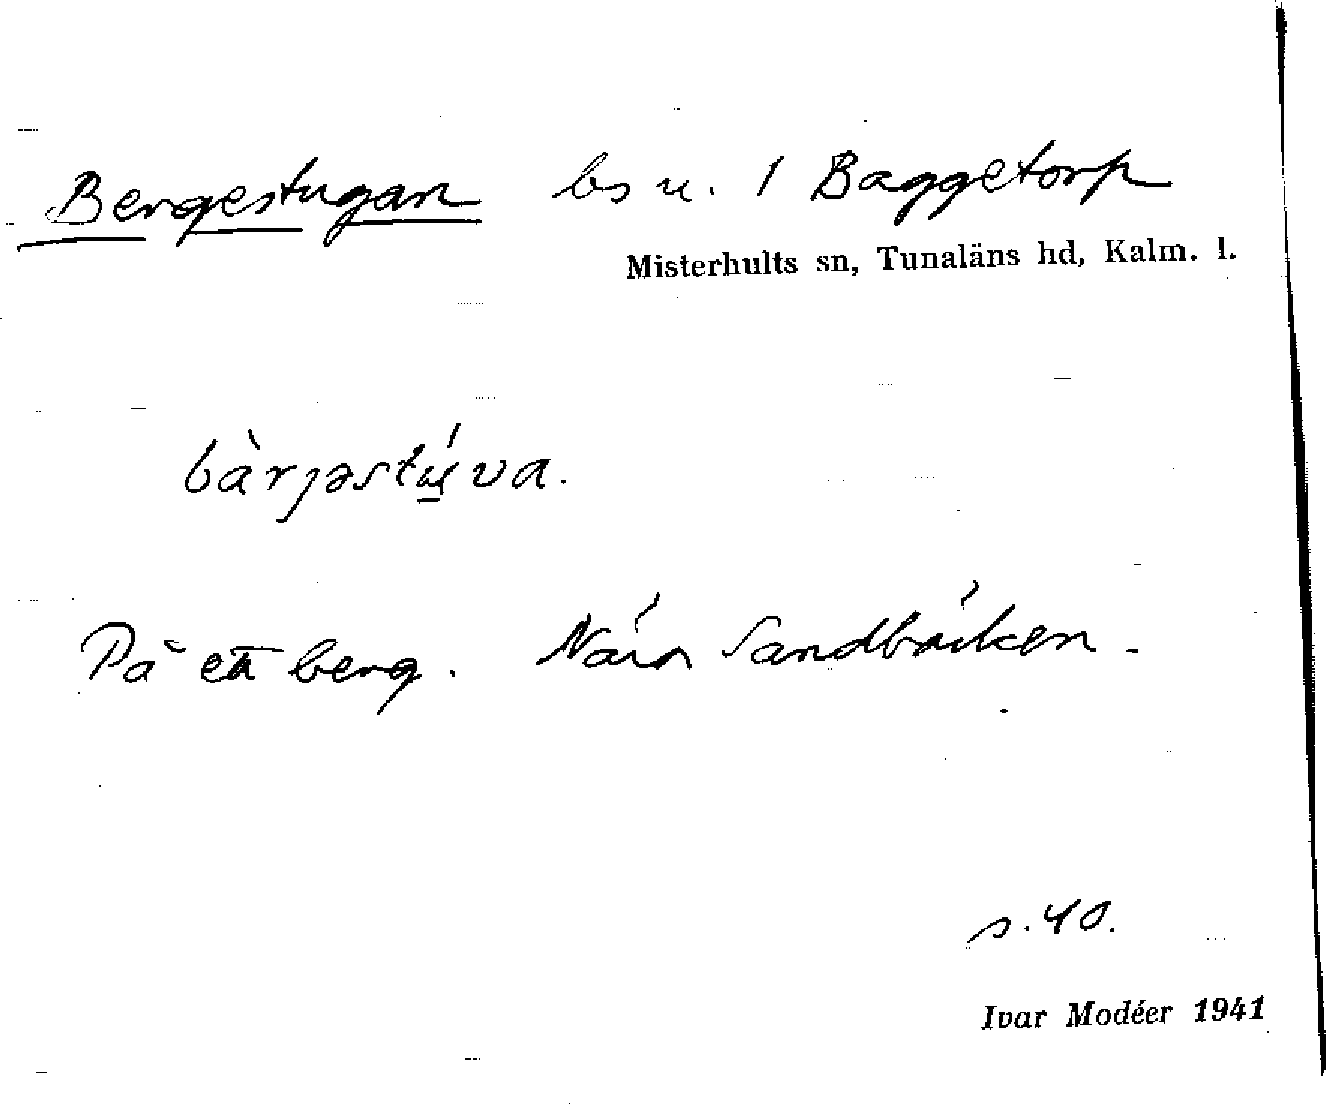 Bergestugan bs u. 1 Baggetorp
Misterhults sn, Tunaläns hd, Kalm. l.
bàrjəstúva.
På ett berg. Nära Sandbäcken.
s. 40.
Ivar Modéer 1941